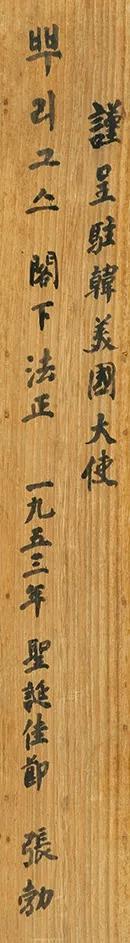 謹呈駐韓美國大使
뿌리그스 閣下法正 一九五三年 聖誕佳節 張勃